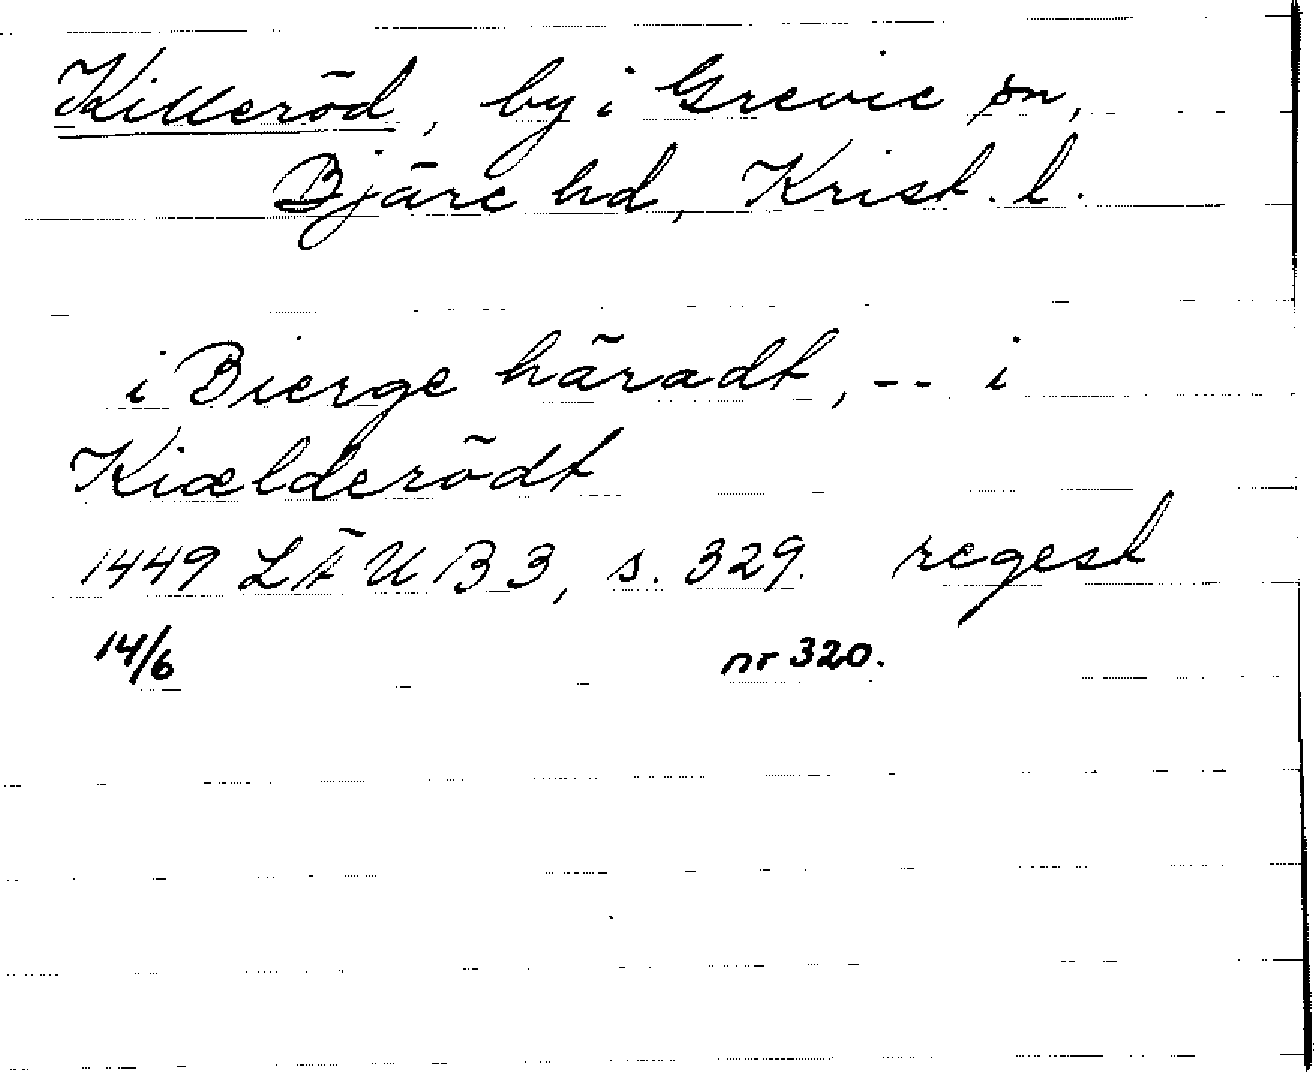 Killeröd, by i Grevie sn,
Bjäre hd, Krist. l.
i Bierge häradt, -- i
Kiælderödt
1449 LÄUB 3, s. 329. regest
14/6 nr 320.